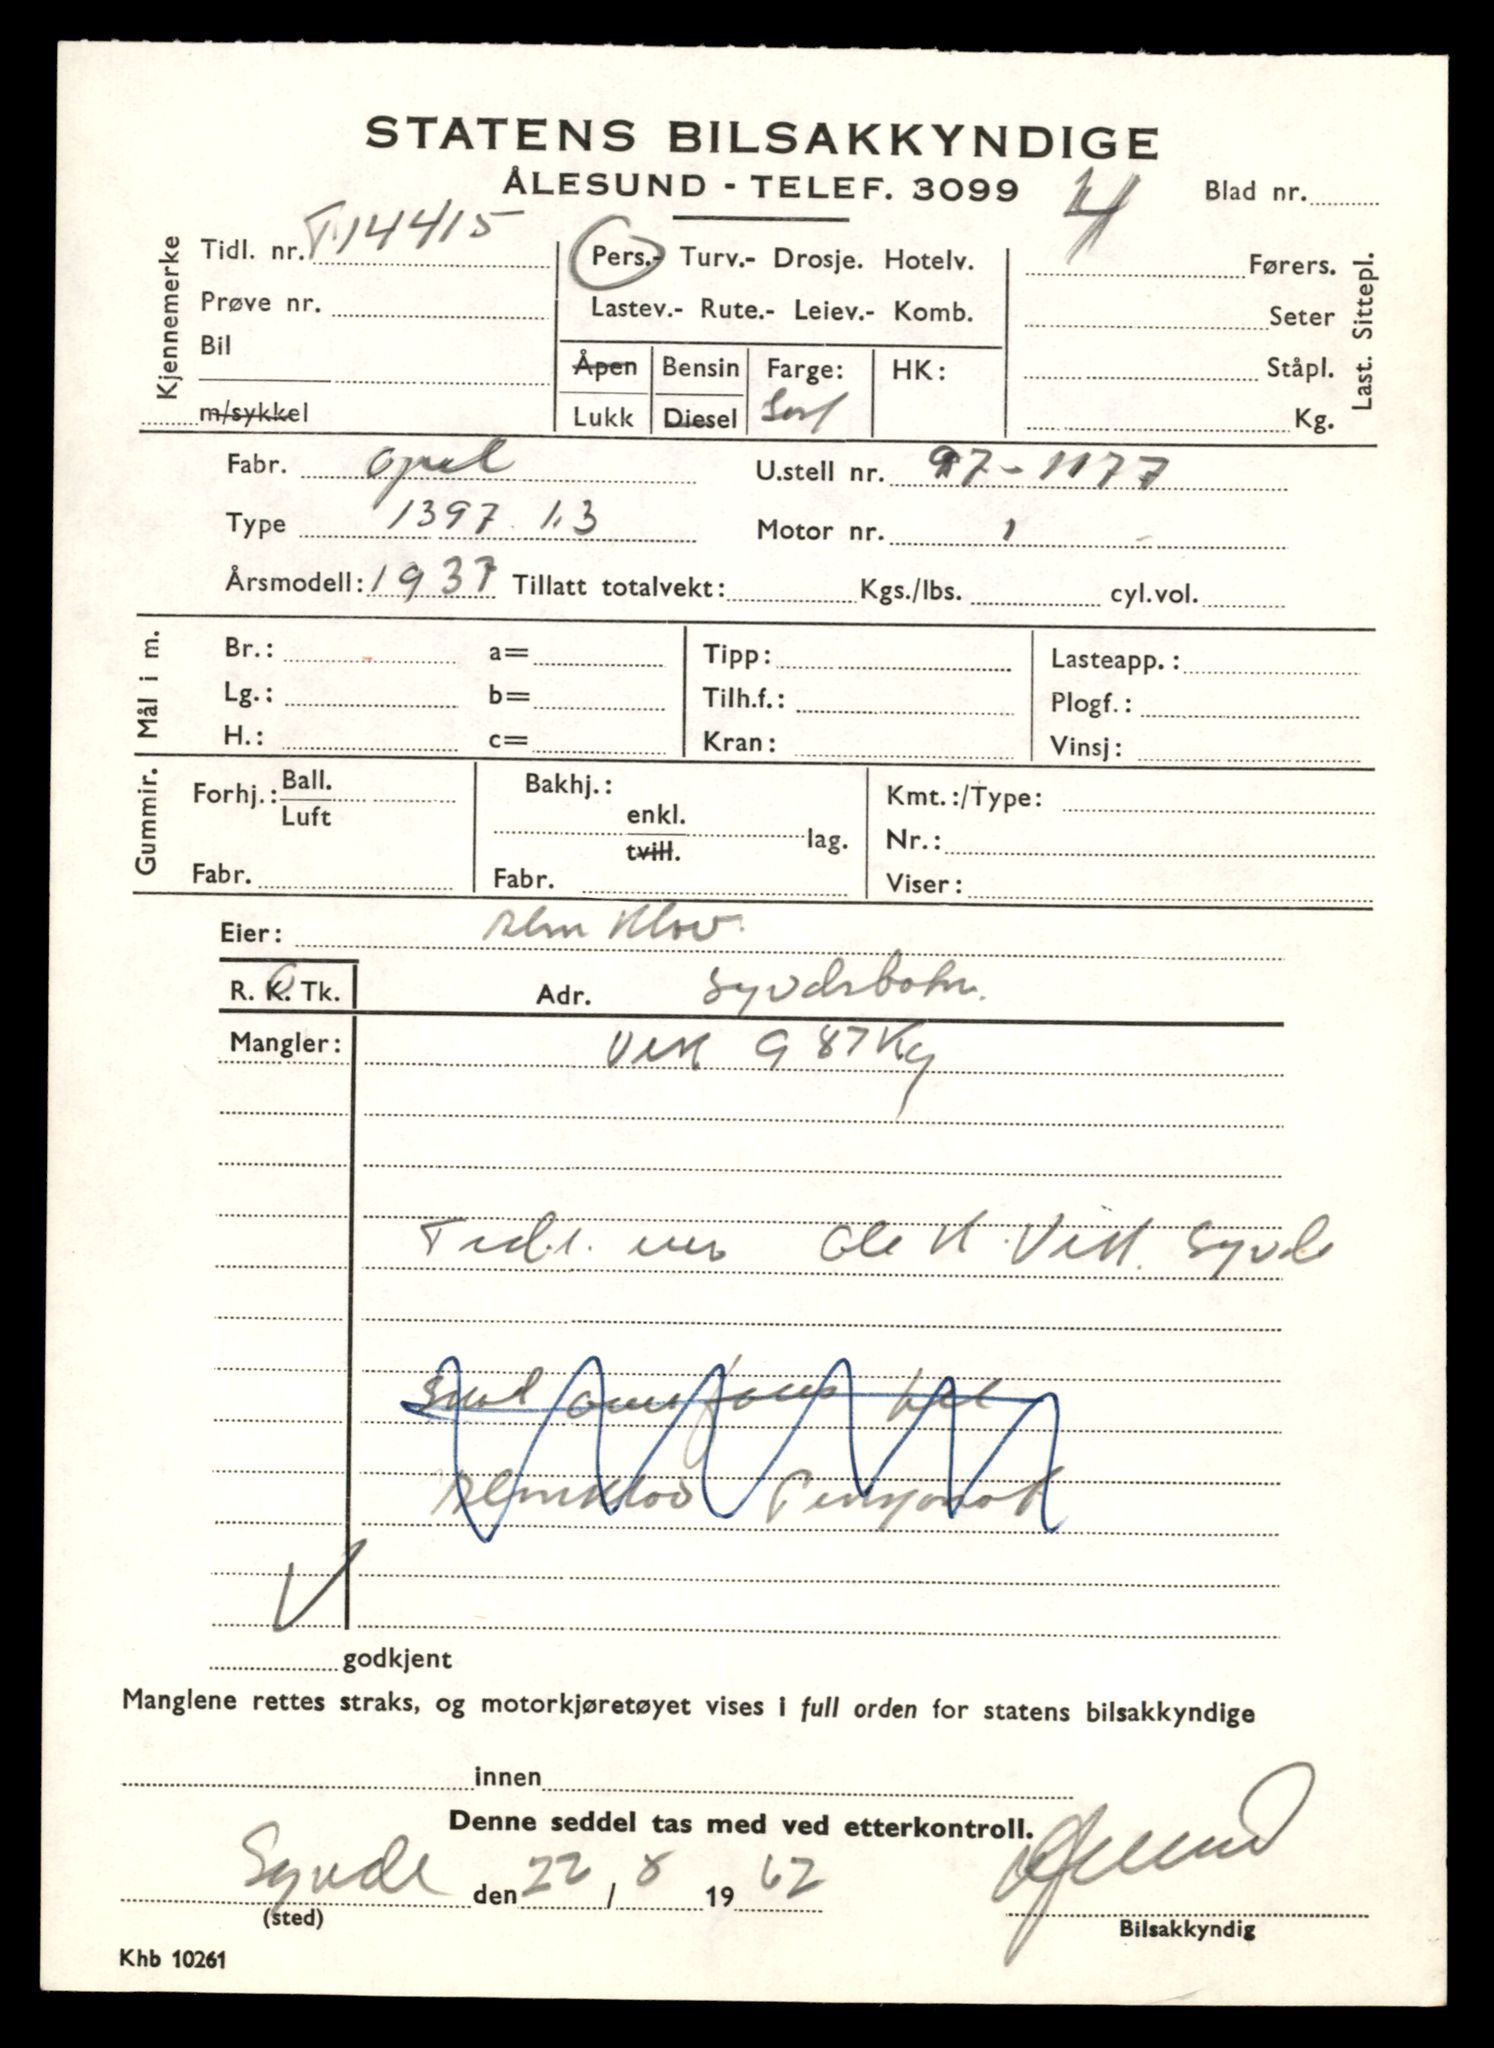 STATENS BILSAKKYNDIGE
ÅLESUND - TELEF. 3099
4
Blad nr.
Kjennemerke
Tidl. nr. T-14415
Pers.- Turv.- Drosje. Hotelv.
Førers.
Prøve nr.
Lastev.- Rute.- Leiev.- Komb.
Seter
Last. Sittepl.
Bil
Åpen Bensin Farge: HK:
Ståpl.
m/sykkel
Lukk Diesel Sort
Kg.
Fabr. Opel U.stell nr. 97-1177
Type 1397 1.3 Motor nr. 1
Årsmodell: 1937 Tillatt totalvekt: Kgs./lbs. cyl.vol.
Mål i m.
Br.: a= Tipp: Lasteapp.:
Lg.: b= Tilh.f.: Plogf.:
H.: c= Kran: Vinsj:
Gummir.
Forhj.: Ball. Bakhj.: Kmt.:/Type:
Luft enkl. lag. Nr.:
tvill.
Fabr. Fabr. Viser:
Eier: Alm Klov
R. K. Tk. Adr.
Mangler: Vekt 987 Kg
Tidl. Ole K. Vik. Syvde
godkjent
Manglene rettes straks, og motorkjøretøyet vises i full orden for statens bilsakkyndige
innen
Denne seddel tas med ved etterkontroll.
Syvde den 22/8 1962
(sted)
Bilsakkyndig
Khb 10261